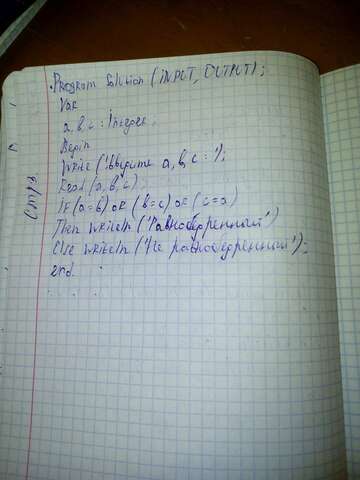 Program Solution (INPUT, OUTPUT);
Var
a, b, c : Integer;
Begin
Write ('Введите a, b, c : ');
Read (a, b, c);
If (a=b) OR (b=c) OR (c=a)
Then writeln ('Равнобедренный')
Else writeln ('Не равнобедренный');
end.
стр 3